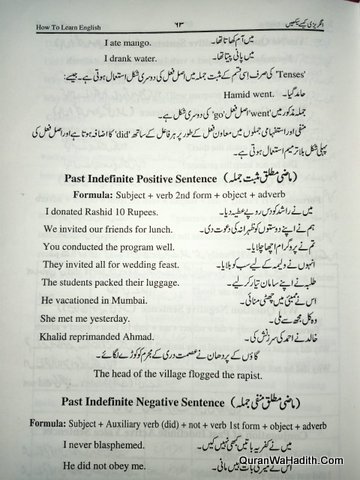 How To Learn English ۶۳ انگریزی کیسے سیکھیں
I ate mango. میں آم کھاتا تھا۔
I drank water. میں پانی پیتا تھا۔
'Tenses' کی صرف اسی قسم کے مثبت جملہ میں اصل فعل کی دوسری شکل استعمال ہوتی ہے۔ جیسے:
Hamid went. حامد گیا۔
جملہ مذکور میں 'went' اصل فعل 'go' کی دوسری شکل ہے۔
منفی اور استفہامی جملوں میں معاون فعل کے طور پر ہر فاعل کے ساتھ 'did' کا اضافہ ہوتا ہے اور اصل فعل کی
پہلی شکل بلا ترمیم استعمال ہوتی ہے۔
Past Indefinite Positive Sentence (ماضی مطلق مثبت جملہ)
Formula: Subject + verb 2nd form + object + adverb
I donated Rashid 10 Rupees. میں نے راشد کو دس روپے عطیہ دیا۔
We invited our friends for lunch. ہم نے اپنے دوستوں کو ظہرانہ کی دعوت دی۔
You conducted the program well. تم نے پروگرام اچھا چلایا۔
They invited all for wedding feast. انہوں نے ولیمہ کے لیے سب کو بلایا۔
The students packed their luggage. طلبہ نے اپنے سامان تیار کر لیے۔
He vacationed in Mumbai. اس نے ممبئی میں چھٹی منائی۔
She met me yesterday. وہ کل مجھ سے ملی۔
Khalid reprimanded Ahmad. خالد نے احمد کی سرزنش کی۔
گاؤں کے پردھان نے عصمت دری کے مجرم کو کوڑے لگائے۔
The head of the village flogged the rapist.
Past Indefinite Negative Sentence (ماضی مطلق منفی جملہ)
Formula: Subject + Auxiliary verb (did) + not + verb 1st form + object + adverb
I never blasphemed. میں نے کفریہ باتیں کبھی نہیں کیں۔
He did not obey me. اس نے میری بات نہیں مانی۔
QuranWaHadith.Com